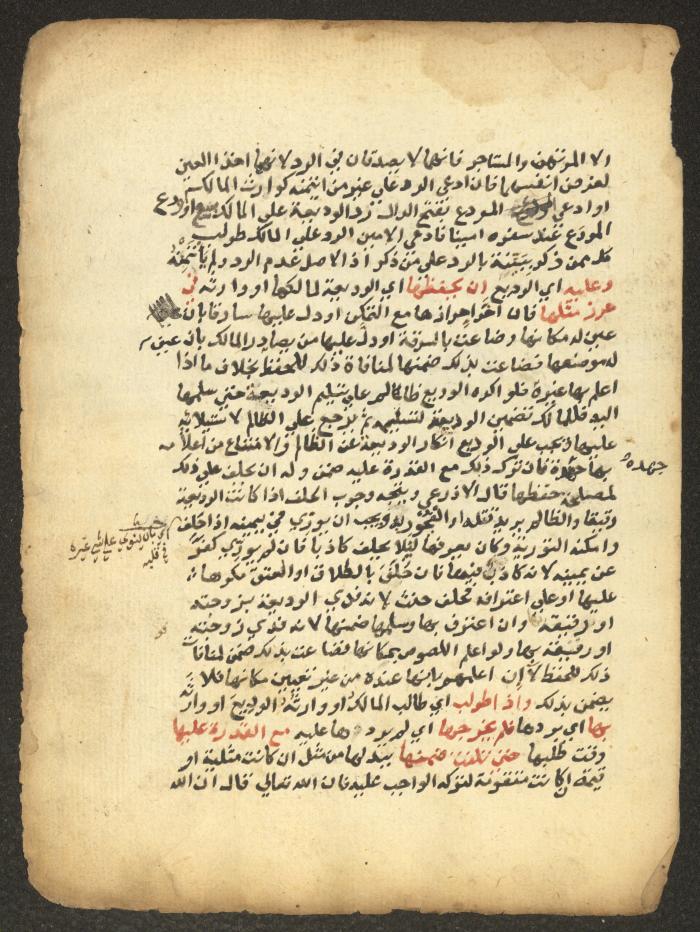 الا المرتهن والمستاجر فانهما لا يصدقان في الرد لانهما اخذا العين
لغرض انفسهما فان ادعي الرد علي غير من ائتمنه كوارث المالك
او ادعي المودع بفتح الدال رد الوديعة علي المالك او اودع
المودع عند سفره امينا فادعي الامين الرد علي المالك طولب
كل ممن ذكر ببينة بالرد علي من ذكر اذ الاصل عدم الرد ولم يأتمنه
وعليه اي الوديع ان يحفظها اي الوديعة لمالكها او وارثه في
حرز مثلها فان اخر احرازها مع التمكن او دل عليها سارقا بان
عين له مكانها وضاعت بالسرقة او دل عليها من يصادر المالك بان عين
له موضعها فضاعت بذلك ضمنها لمنافاة ذلك للحفظ بخلاف ما اذا
اعلم بها غيره فلو اكره الوديع ظالم علي تسليم الوديعة حتي سلمها
اليه فللمالك تضمين الوديع لتسليمه ثم يرجع علي الظالم لاستيلائه
عليها ويجب علي الوديع انكار الوديعة عن الظالم والامتناع من اعلامه
بها جهده فان ترك ذلك مع القدرة عليه ضمن وله ان يحلف علي ذلك
جهده
لمصلحة حفظها قال الاذرعي ويتجه وجوب الحلف اذا كانت الوديعة
رقيقا والظالم يريد قتله او الفجور به ويجب ان يوري في يمينه اذا حلف
وامكنه التورية وكان يعرفها لئلا يحلف كاذبا فان لم يوري كفر
عن يمينه لانه كاذب فيها فان حلف بالطلاق او العتق مكرها
عليها او علي اعترافه فحلف حنث لانه فدي الوديعة بزوجته
او رقيقه وان اعترف بها وسلمها ضمنها لانه فدي زوجته
او رقيقه بها ولو اعلم اللصوص بمكانها فضاعت بذلك ضمن لمنافات
ذلك للحفظ لا ان اعلمهم بانها عنده من غير تعيين مكانها فلا
يضمن بذلك واذا طولب اي طالب المالك او وارثه الوديع او وارثه
بها اي بردها فلم يخرجها اي لم يردها عليه مع القدرة عليها
وقت طلبها حتي تلفت ضمنها ببدلها من مثل ان كانت مثلية او
قيمة ان كانت متقومة لتركه الواجب عليه فان الله تعالي قال ان الله